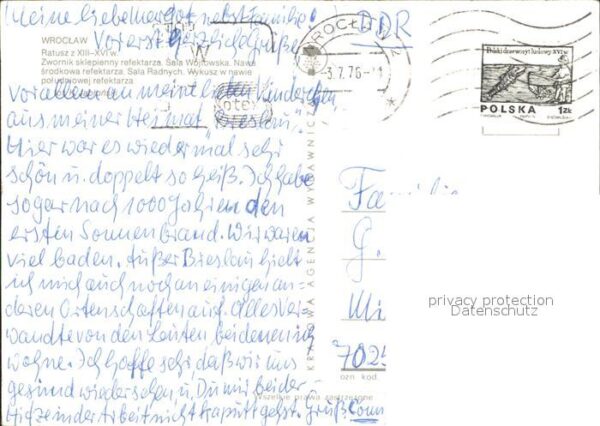 Meine liebe Margot nebst Familie!
Vorerst herzliche Grüße
WROCŁAW
Ratusz z XIII-XVI w.
Zwornik sklepienny refektarza. Sala Wójtowska. Nawa
środkowa refektarza. Sala Radnych. Wykusz w nawie
południowej refektarza
vor allem an meine lieben Kinderchen
aus meiner Heimat „Breslau“.
Hier war es wieder mal sehr
schön u. doppelt so heiß. Ich habe
sogar nach 1000 Jahren den
ersten Sonnenbrand. Wir waren
viel baden. Außer Breslau hielt
ich mich auch noch an einigen an=
deren Ortenschaften auf. Alles Ver=
wandte von den Leuten bei denen ich
wohne. Ich hoffe sehr, daß wir uns
gesund wiedersehen u. Du mir bei der
Hitze in der Arbeit nicht kaputt gehst. Gruß
DDR
WROCŁAW
3.7.76
POLSKA 1 ZŁ
KRAJOWA AGENCJA WYDAWNICZA
Familie
G.
Mi
702
ozn. kod.
Wszelkie prawa zastrzeżone
privacy protection
Datenschutz